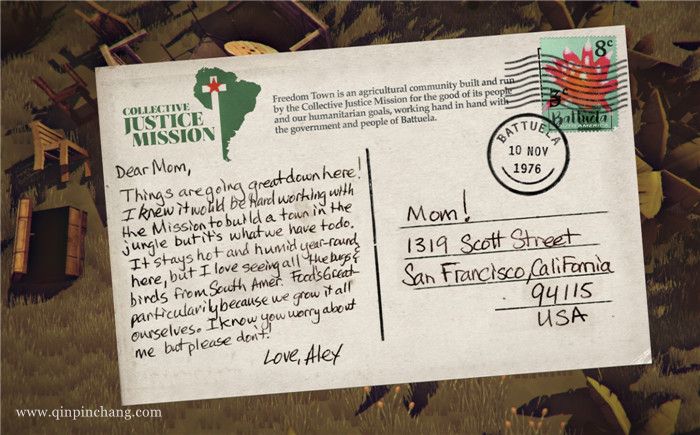 COLLECTIVE
JUSTICE
MISSION
Freedom Town is an agricultural community built and run
by the Collective Justice Mission for the good of its people
and our humanitarian goals, working hand in hand with
the government and people of Battuela.
8c
3c
Battuela
SOUTH AMERICA
BATTUELA
10 NOV
1976
Dear Mom,
Things are going great down here!
I knew it would be hard working with
the Mission to build a town in the
jungle but it's what we have to do.
It stays hot and humid year-round
here, but I love seeing all the bugs &
birds from South Amer. Food's Great
particularly because we grow it all
ourselves. I know you worry about
me but please don't!
Love, Alex
Mom!
1319 Scott Street
San Francisco, California
94115
USA
www.qinpinchang.com